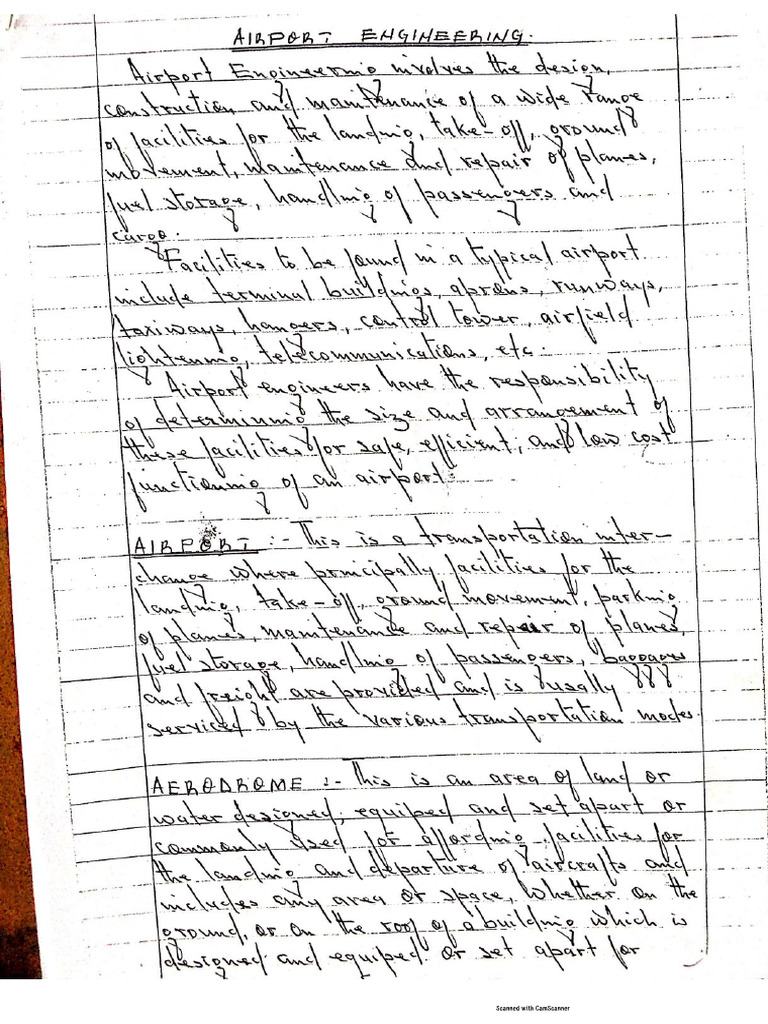 AIRPORT ENGINEERING.
Airport Engineering involves the design,
construction and maintenance of a wide range
of facilities for the landing, take-off, ground
movement, maintenance and repair of planes,
fuel storage, handling of passengers and
cargo.
Facilities to be found in a typical airport
include terminal buildings, aprons, runways,
taxiways, hangers, control tower, airfield
lightening, telecommunications, etc.
Airport engineers have the responsibility
of determining the size and arrangement of
these facilities for safe, efficient, and low cost
functioning of an airport.
AIRPORT :- This is a transportation inter-
change where principally facilities for the
landing, take-off, ground movement, parking
of planes, maintenance and repair of planes,
fuel storage, handling of passengers, baggages
and freight are provided and is usally
serviced by the various transportation modes.
AERODROME :- This is an area of land or
water designed, equiped and set apart or
commonly used for affording facilities for
the landing and departure of aircrafts and
includes any area or space, whether on the
ground, or on the roof of a building which is
designed and equiped or set apart for
Scanned with CamScanner